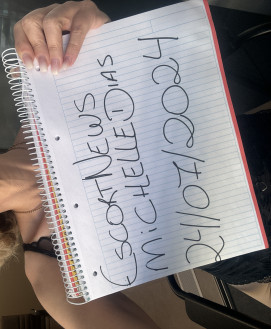 EscortNews
MiCHELLE DIAS
24/07/2024